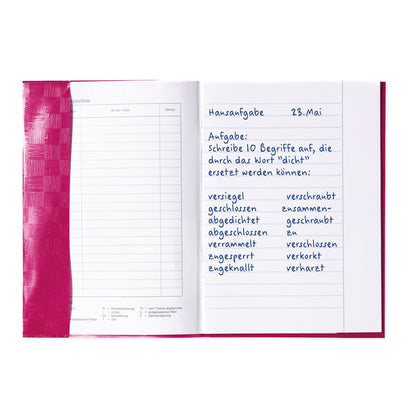 Hausaufgabe 23.Mai
Aufgabe:
Schreibe 10 Begriffe auf, die
durch das Wort "dicht"
ersetzt werden können:
versiegel verschraubt
geschlossen zusammen-
abgedichtet geschraubt
abgeschlossen zu
verrammelt verschlossen
zugesperrt verkorkt
zugeknallt verharzt